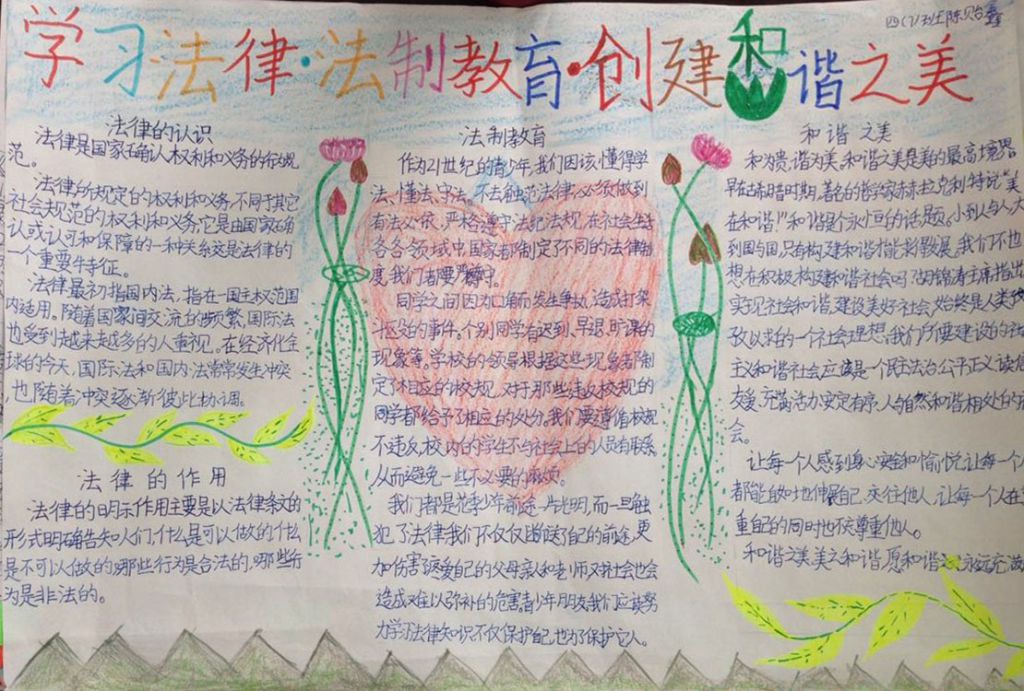 学习法律·法制教育·创建和谐之美
四(7)班陈贝怡
法律的认识
法律是国家确认权利和义务的行为规
范。
法律所规定的权利和义务,不同于其它
社会规范的权利和义务,它是由国家确
认或认可和保障的一种关系这是法律的
一个重要特征。
法律最初指国内法,指在一国主权范围
内适用。随着国家间交流的频繁,国际法
也受到越来越多的人重视。在经济化全
球的今天,国际法和国内法常常发生冲突
,也随着冲突逐渐彼此协调。
法律的作用
法律的明示作用主要是以法律条文的
形式明确告知人们,什么是可以做的什么
是不可以做的哪些行为是合法的,哪些行
为是非法的。
法制教育
作为21世纪的青少年,我们因该懂得学
法、懂法、守法,不去触范法律,必须做到
有法必依,严格遵守法纪法规,在社会生活
各各领域中,国家都制定了不同的法律制
度,我们者要严格守。
同学之间因为口角而发生争执,造成打架
斗殴的事件。个别同学有迟到,早退,旷课的
现象等。学校的领导根据这些现象者制
定了相应的校规,对于那些违反校规的
同学都给予了相应的处分。我们要遵循校规
不违反,校内的学生不与社会上的人员有联系
从而避免一些不必要的麻烦。
我们者是花季少年前途一片光明,而一旦触
犯了法律,我们不仅仅断送了自己的前途,更
加伤害疼爱自己的父母亲人和老师又对社会也会
造成难以弥补的危害,青少年月朋友我们应该努
力学习法律知识不仅保护自己,也为了保护它人。
和谐之美
和为贵,谐为美。和谐之美是美的最高境界
早在古希腊时期,著名的哲学家赫拉克利特说“美
在和谐!”和谐是个永恒的话题。小到人与人,大
到国与国,只有构建和谐才能彩发展。我们不也
想在积极构建和谐社会吗?胡锦涛主席指出
实现社会和谐,建设美好社会,始终是人类孜
孜以求的一个社会理想,我们所要建设的社
主义和谐社会应该是一个民主法治公平正义诚信
友爱,充满活力安定有序,人与自然和谐相处的社
会。
让每一个人感到身心安全和愉悦,让每一个人
都能自如地伸展自己,交往他人,让每一个人在
重自己的同时也不忘尊重他人。
和谐之美,美之和谐,愿和谐之永远充满